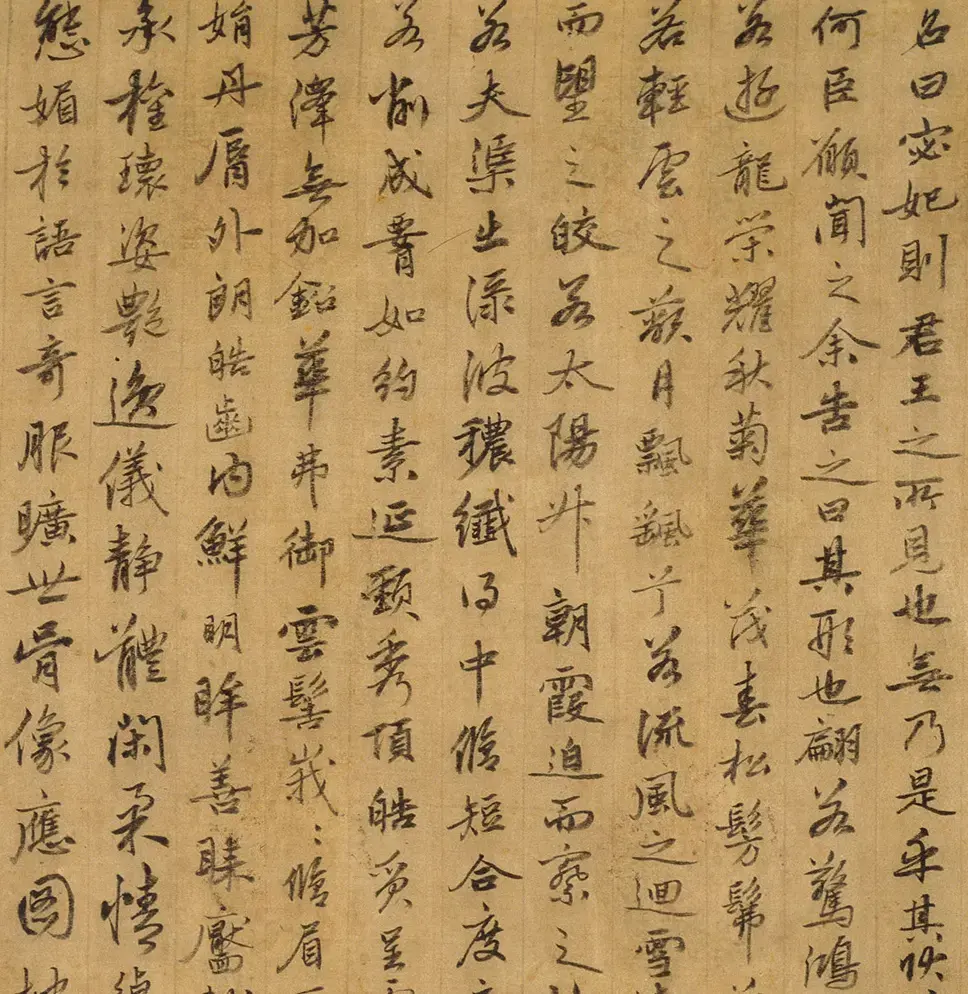 名曰宓妃則君王之所見也無乃是乎其狀
何臣願聞之余告之曰其形也翩若驚鴻
若遊龍榮耀秋菊華茂春松髣髴
若輕雲之蔽月飄颻兮若流風之迴雪
而望之皎若太陽升朝霞迫而察之
若夫渠出淥波穠纖得中脩短合度
若削成肩如約素延頸秀項皓質呈
芳澤無加鉛華弗御雲髻峩〻脩眉
娟丹脣外朗皓齒內鮮明眸善睞靨
承權瓌姿艷逸儀靜體閑柔情
態媚於語言奇服曠世骨像應圖